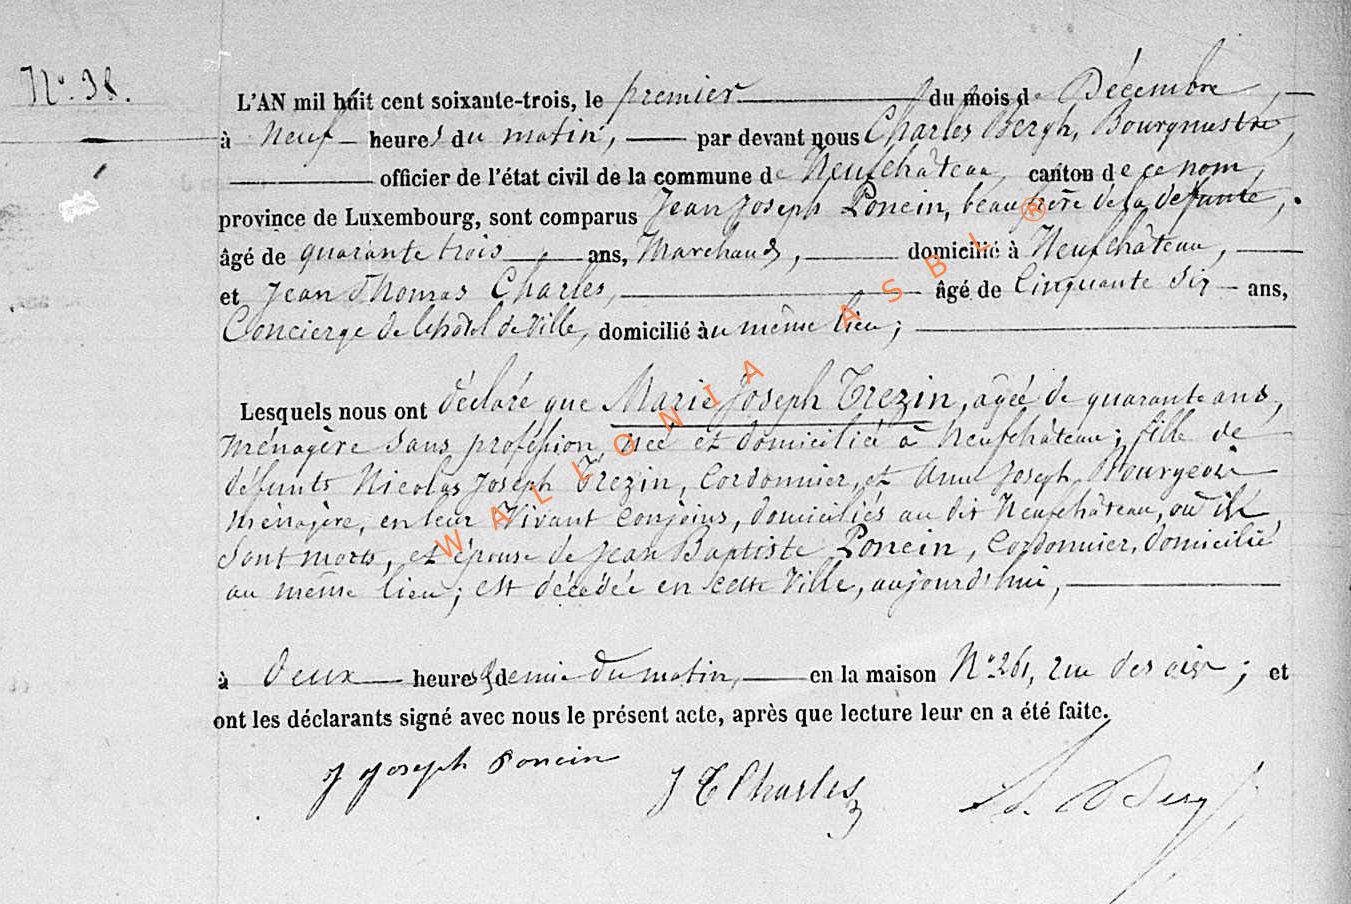 N° 38.
L'AN mil huit cent soixante-trois, le premier du mois de Décembre,
à Neuf heures du matin, par devant nous Charles Bergh, Bourgmestre,
officier de l'état civil de la commune de Neufchâteau, canton de ce nom,
province de Luxembourg, sont comparus Jean Joseph Poncin, beau frère de la défunte,
âgé de quarante trois ans, Marchand, domicilié à Neufchâteau,
et Jean Thomas Charles, âgé de Cinquante six ans,
Concierge de l'hôtel de Ville, domicilié au même lieu;
Lesquels nous ont déclaré que Marie Joseph Trezin, âgée de quarante ans,
ménagère sans profession, née et domiciliée à Neufchâteau; fille de
défunts Nicolas Joseph Trezin, Cordonnier, et Anne Joseph Bourgeois
ménagère, en leur Vivant conjoins, domiciliés au dit Neufchâteau, où ils
sont morts, et épouse de Jean Baptiste Poncin, Cordonnier, domicilié
au même lieu; est décédée en cette Ville, aujourd'hui,
à deux heures & demie du matin, en la maison N° 261, rue des ; et
ont les déclarants signé avec nous le présent acte, après que lecture leur en a été faite.
J Joseph Poncin J T Charles Ch. Bergh
WALLONIA ASBL ®